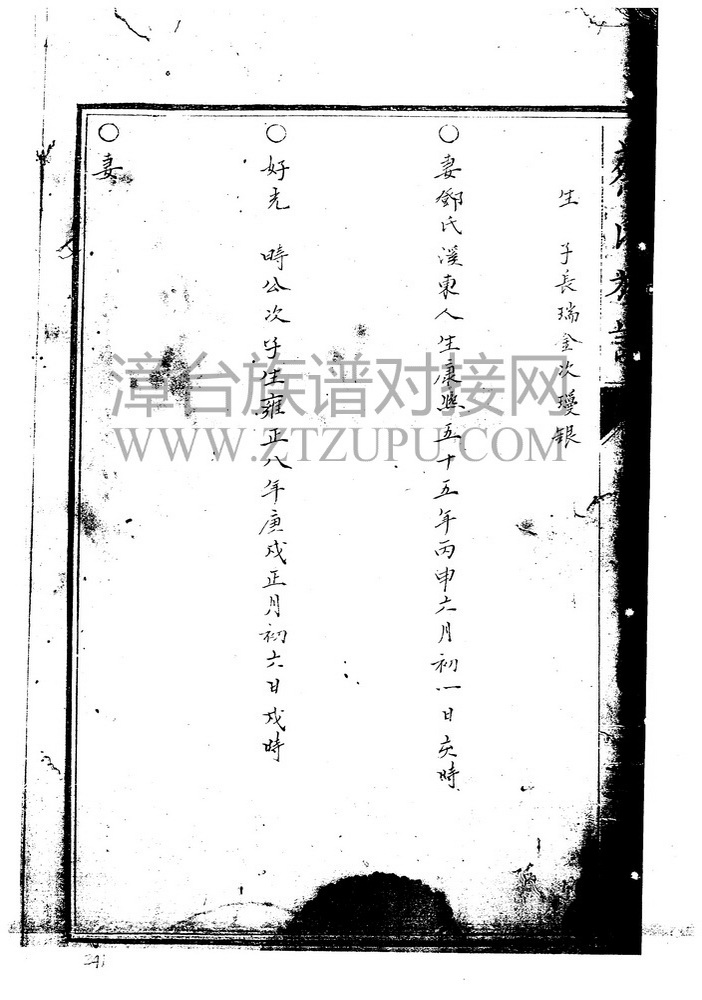 生 子長瑞金次瓊銀
○ 妻鄧氏溪東人生康熙五十五年丙申六月初一日亥時
○ 好光 時公次子生雍正八年庚戌正月初六日戌時
○ 妻
漳台族谱对接网
WWW.ZTZUPU.COM